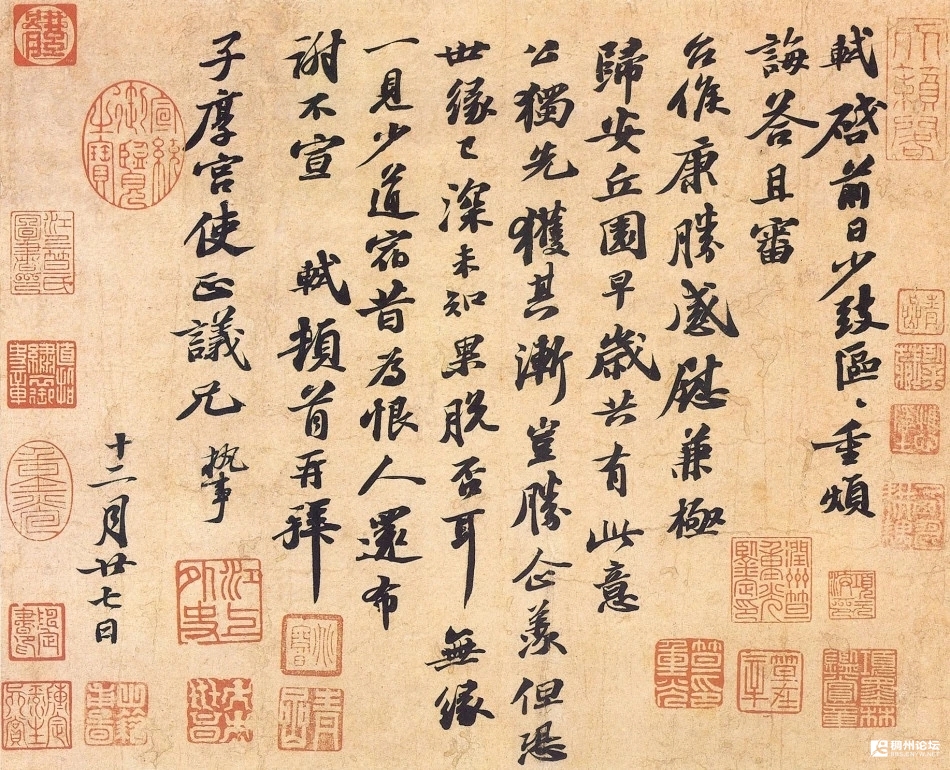 軾啓前日少致區〻重煩
誨答且審
台候康勝感慰兼極
歸安丘園早歲共有此意
公獨先獲其漸豈勝企羨但恐
世緣已深未知果脫否耳 無緣
一見少道宿昔為恨人還布
謝不宣 軾頓首再拜
子厚宮使正議兄 執事
十二月廿七日
天籟閣
宣統御覽之寶
江上外史
重光
稠州论坛